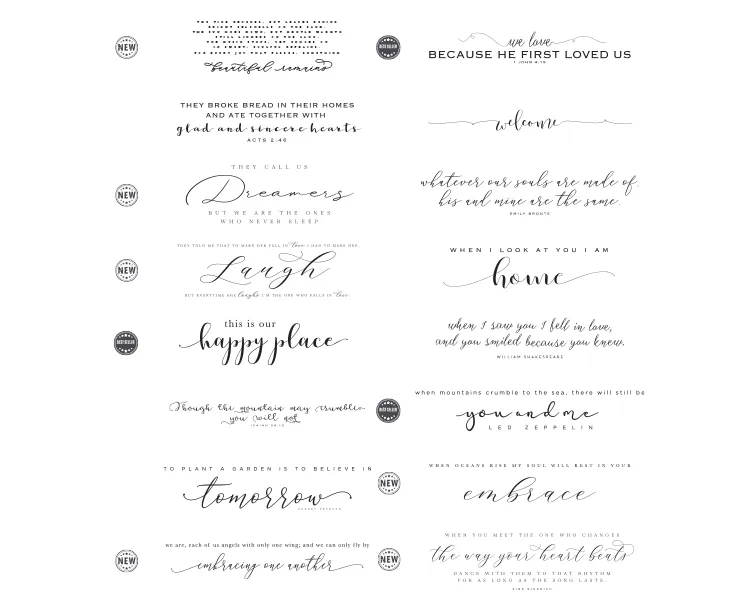 NEW
beautiful remains
THEY BROKE BREAD IN THEIR HOMES
AND ATE TOGETHER WITH
glad and sincere hearts
ACTS 2:46
NEW
THEY CALL US
Dreamers
BUT WE ARE THE ONES
WHO NEVER SLEEP
NEW
THEY TOLD ME THAT TO MAKE HER FALL IN love I HAD TO MAKE HER
Laugh
BUT EVERYTIME SHE laughs I'M THE ONE WHO FALLS IN love
BEST SELLER
this is our
happy place
Though the mountain may crumble
you will not
TO PLANT A GARDEN IS TO BELIEVE IN
tomorrow
AUDREY HEPBURN
NEW
we are, each of us angels with only one wing; and we can only fly by
embracing one another
BEST SELLER
we love
BECAUSE HE FIRST LOVED US
1 JOHN 4:19
welcome
whatever our souls are made of
his and mine are the same.
EMILY BRONTE
WHEN I LOOK AT YOU I AM
home
when I saw you I fell in love,
and you smiled because you knew.
WILLIAM SHAKESPEARE
BEST SELLER
when mountains crumble to the sea, there will still be
you and me
LED ZEPPELIN
NEW
WHEN OCEANS RISE MY SOUL WILL REST IN YOUR
embrace
NEW
WHEN YOU MEET THE ONE WHO CHANGES
the way your heart beats
DANCE WITH THEM TO THAT RHYTHM
FOR AS LONG AS THE SONG LASTS.